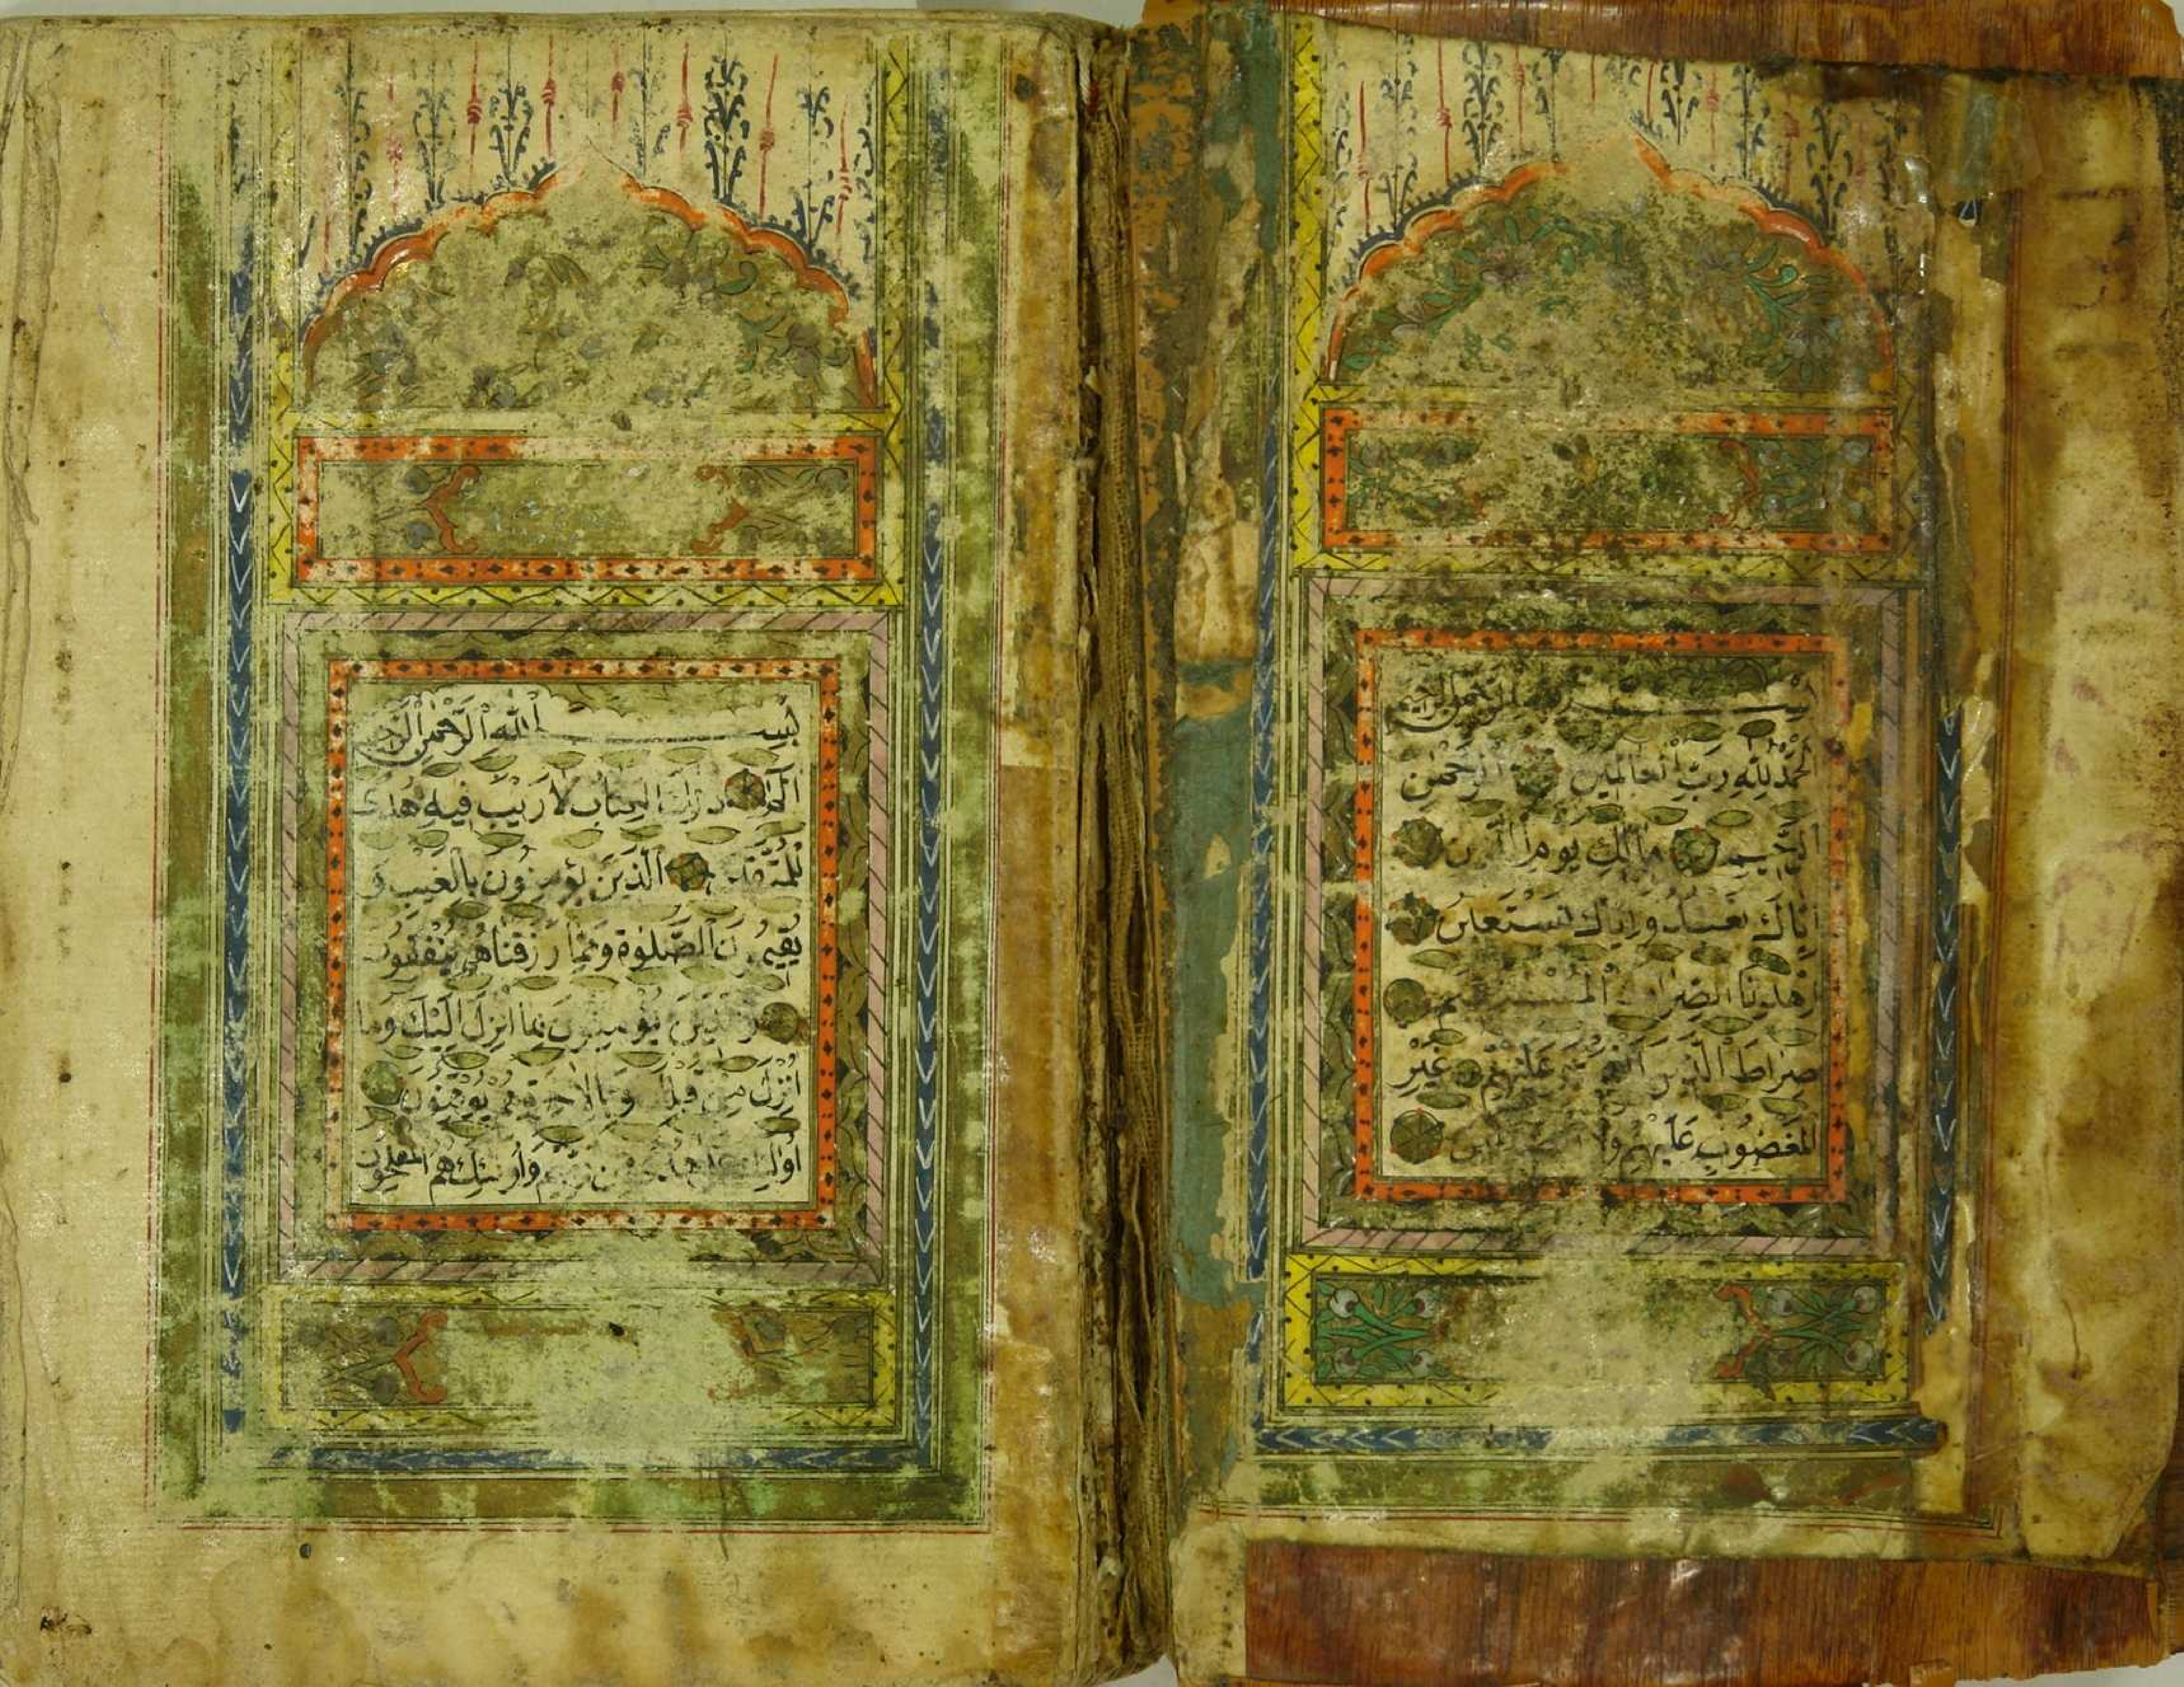 بسم الله الرحمن الرحيم
الحمد لله رب العالمين الرحمن
الرحيم مالك يوم الدين
اياك نعبد واياك نستعين
اهدنا الصراط المستقيم
صراط الذين انعمت عليهم غير
المغضوب عليهم ولا
بسم الله الرحمن الرحيم
الم ذلك الكتاب لا ريب فيه هدى
للمتقين الذين يؤمنون بالغيب و
يقيمون الصلوة ومما رزقناهم ينفقون
والذين يؤمنون بما انزل اليك وما
انزل من قبلك وبالاخرة هم يوقنون
اولئك على هدى من ربهم واولئك هم المفلحون